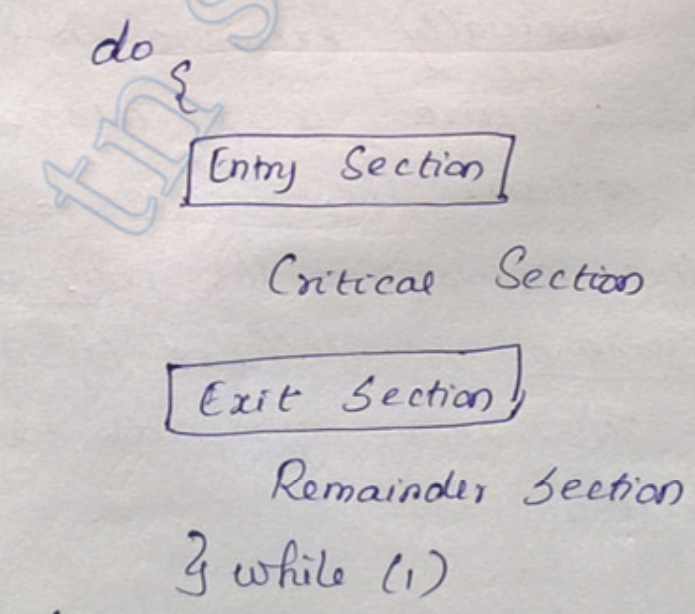 do
{
Entry Section
Critical Section
Exit Section
Remainder Section
} while (1)